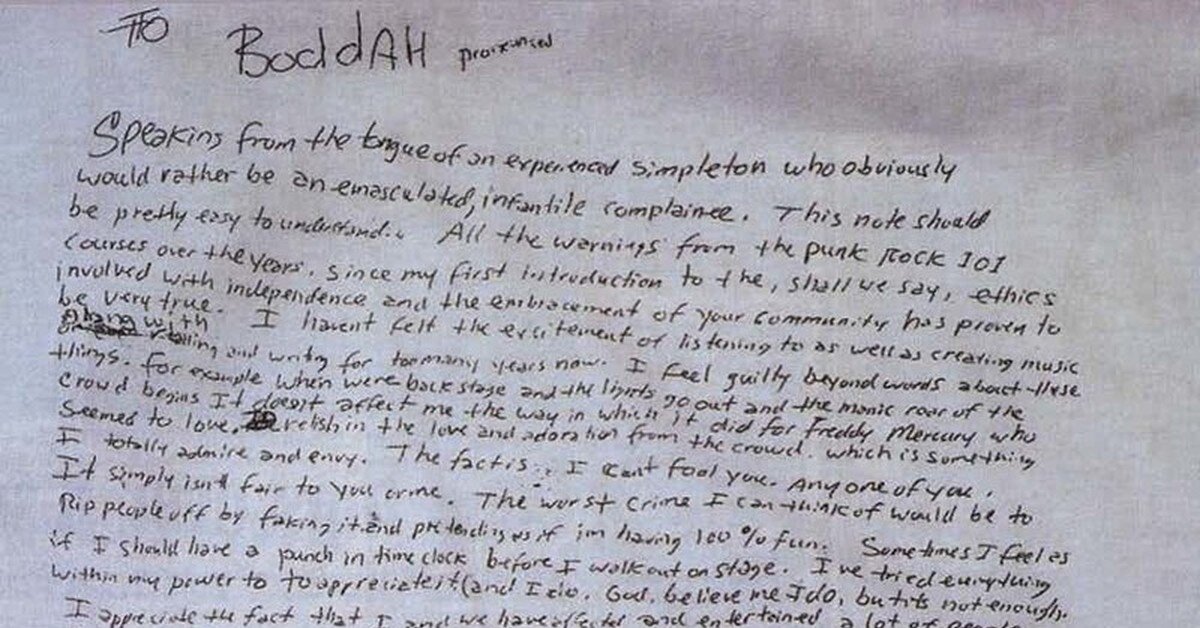 To BoddAH pronounced
Speaking from the tongue of an experienced simpleton who obviously
would rather be an emasculated, infantile complainee. This note should
be pretty easy to understand. All the warnings from the punk rock 101
courses over the years. Since my first introduction to the, shall we say, ethics
involved with independence and the embracement of your community has proven to
be very true. I havent felt the excitement of listening to as well as creating music
along with and writing for too many years now. I feel guilty beyond words about these
things. for example when were backstage and the lights go out and the manic roar of the
crowd begins It doesnt affect me the way in which it did for Freddy Mercury who
seemed to love, relish in the love and adoration from the crowd. which is something
I totally admire and envy. The fact is, I cant fool you. Any one of you.
It simply isn't fair to you or me. The worst crime I can think of would be to
Rip people off by faking it and pretending as if im having 100% fun. Sometimes I feel as
if I should have a punch in time clock before I walk out on stage. I've tried everything
within my power to to appreciate it (and I do. God. believe me I do, but its not enough.
I appreciate the fact that I and we have affected and entertained a lot of people